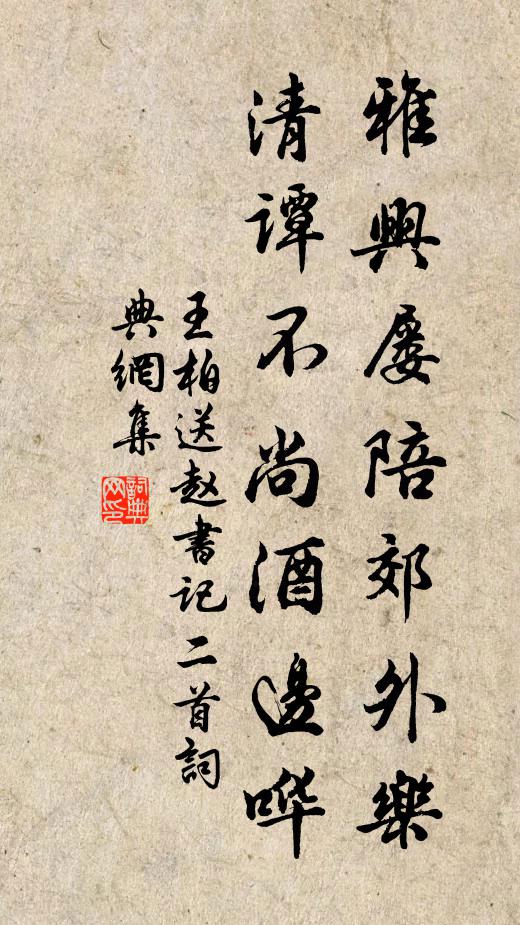 雅興屡陪郊外樂
清譚不尚酒邊哗
王柏送赵書记二首詞
典網集
詞典网印